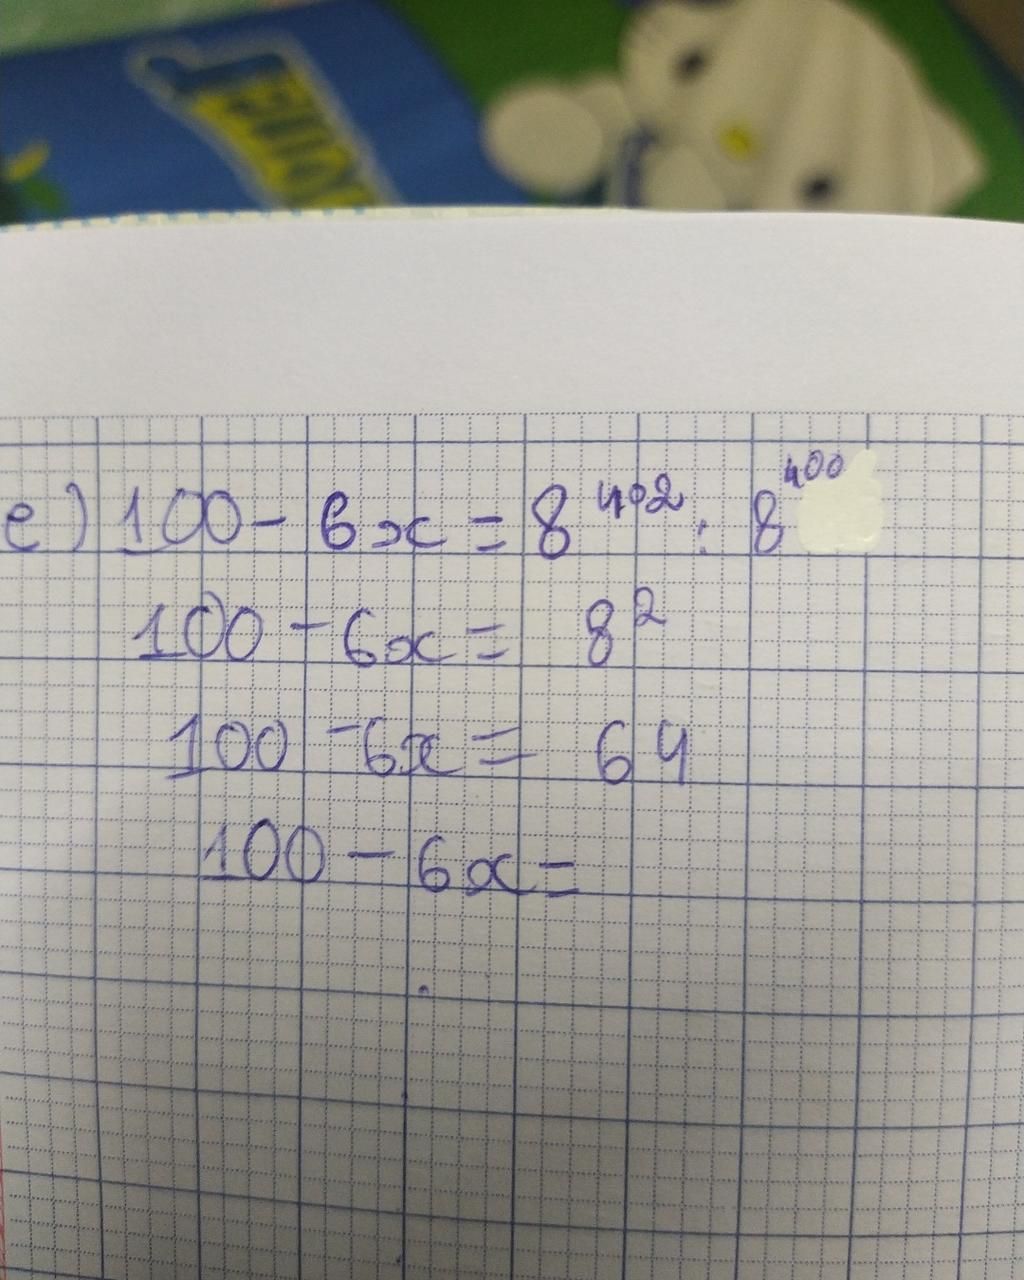 e) 100 - 6x = 8^402 : 8^400
100 - 6x = 8^2
100 - 6x = 64
100 - 6x =